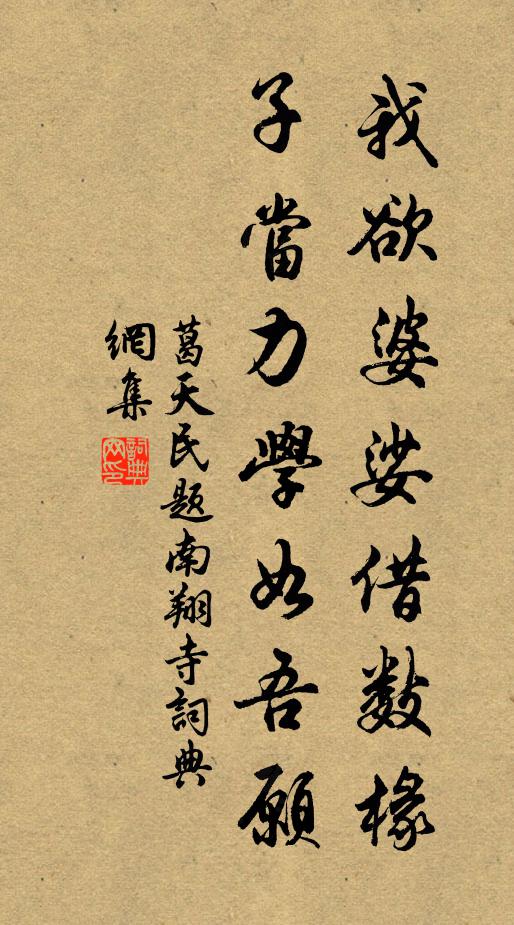 我欲婆娑借數椽
子當力學如吾願
葛天民題南翔寺詞典
網集
詞典網印